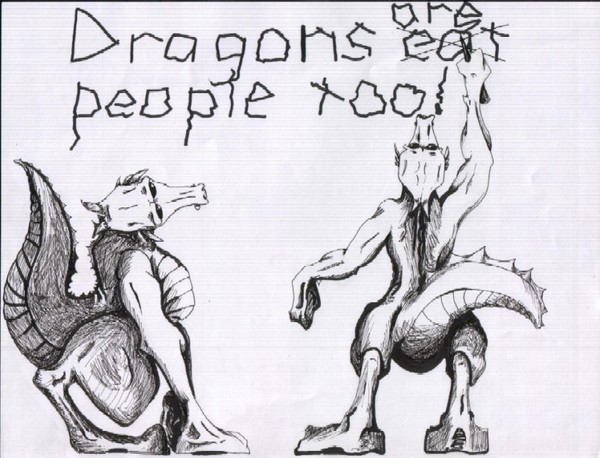 are
Dragons eat
people too!